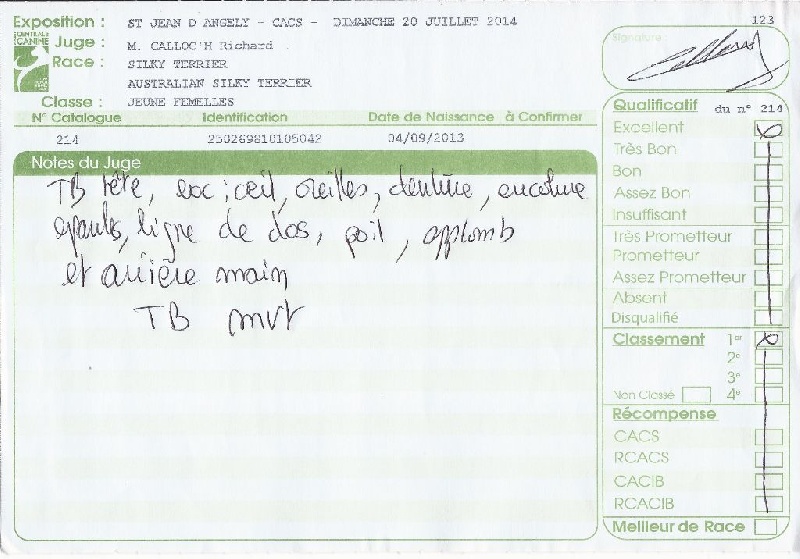 Exposition : ST JEAN D ANGELY - CACS - DIMANCHE 20 JUILLET 2014
123
CENTRALE CANINE
Juge : M. CALLOC'H Richard
Race : SILKY TERRIER
AUSTRALIAN SILKY TERRIER
Classe : JEUNE FEMELLES
N° Catalogue Identification Date de Naissance à Confirmer
214 250269810105042 04/09/2013
Notes du Juge
TB tête, exc : œil, oreilles, dentine, encolure
epaules, ligne de dos, poil, applomb
et arrière main
TB mvt
Signature :
Qualificatif du n° 214
Excellent X
Très Bon
Bon
Assez Bon
Insuffisant
Très Prometteur
Prometteur
Assez Prometteur
Absent
Disqualifié
Classement 1er X
2e
3e
Non Classé 4e
Récompense
CACS
RCACS
CACIB
RCACIB
Meilleur de Race